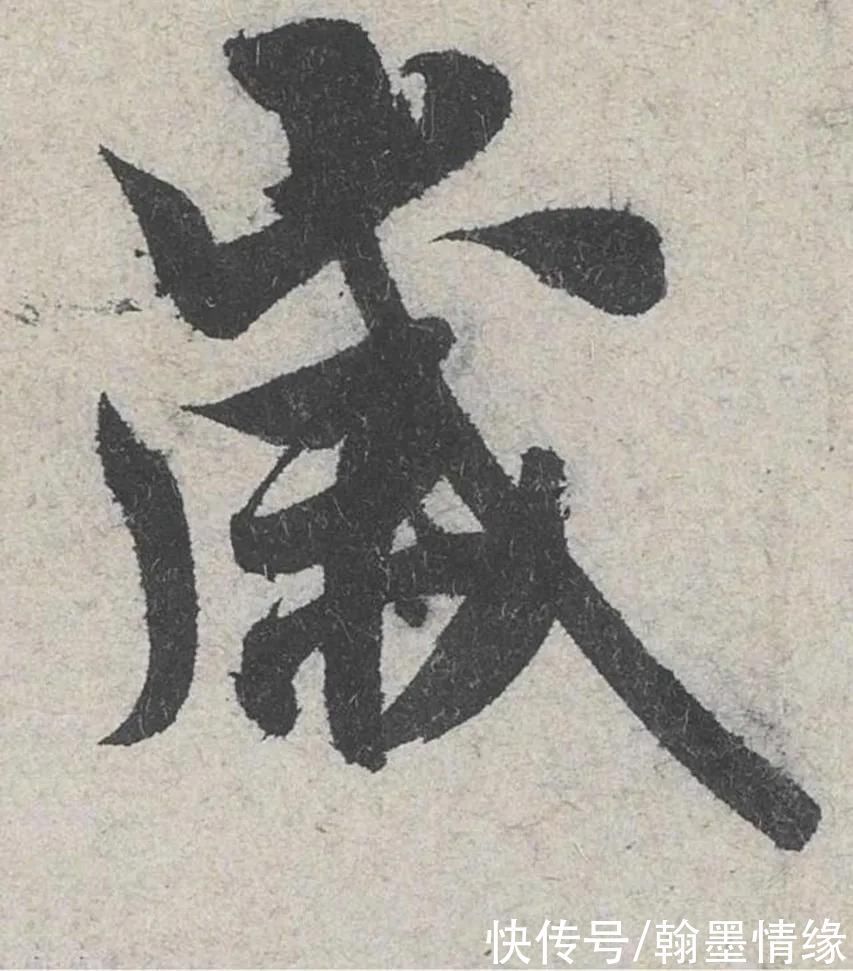 歲
快传号/翰墨情缘